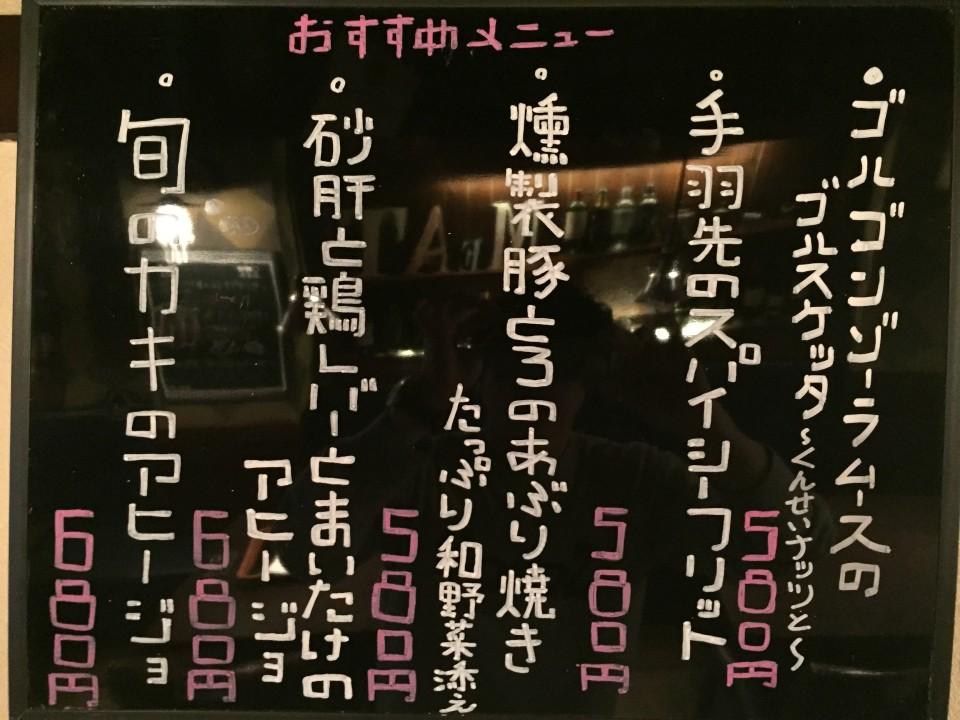 おすすめメニュー
・ゴルゴンゾーラムースの
ゴルスケッタ～くんせいナッツと～
580円
・手羽先のスパイシーフリット
580円
・燻製豚とろのあぶり焼き
たっぷり和野菜添え
580円
・砂肝と鶏レバーとまいたけの
アヒージョ
680円
・旬のカキのアヒージョ
680円